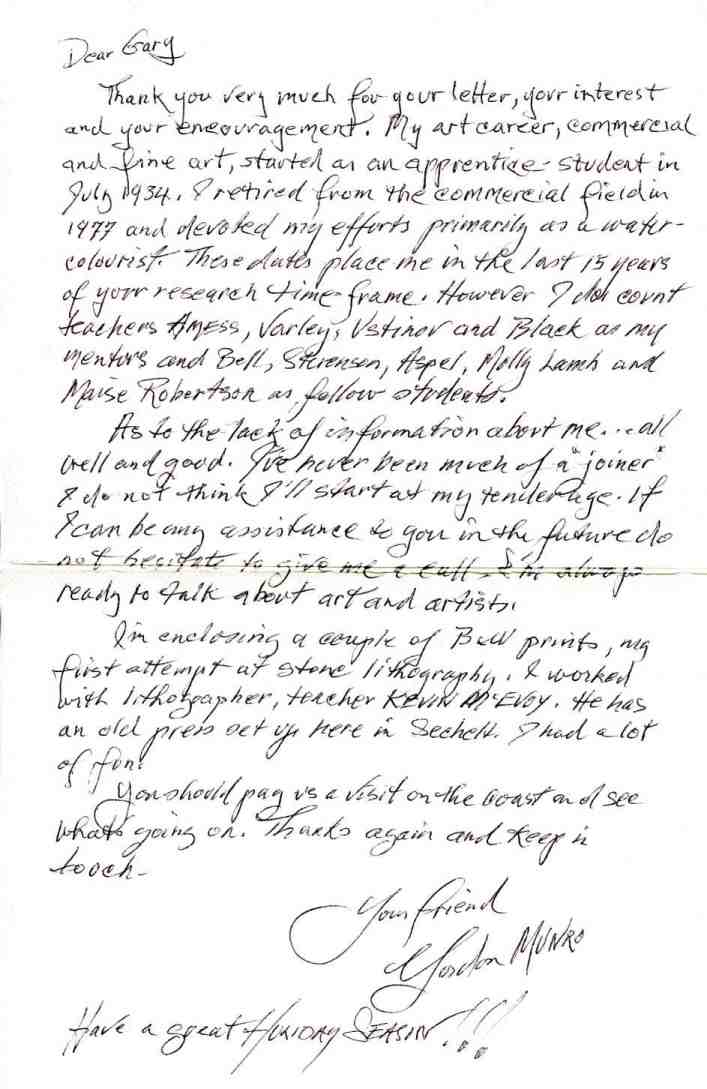 Dear Gary
Thank you very much for your letter, your interest
and your encouragement. My art career, commercial
and fine art, started as an apprentice-student in
July 1934. I retired from the commercial field in
1977 and devoted my efforts primarily as a water-
colourist. These dates place me in the last 15 years
of your research time frame. However I do count
teachers AMESS, Varley, Ustinov and Black as my
mentors and Bell, Stevenson, Aspel, Molly Lamb and
Maise Robertson as fellow students.
As to the lack of information about me... all
well and good. I've never been much of a "joiner"
I do not think I'll start at my tender age. If
I can be any assistance to you in the future do
not hesitate to give me a call. I'm always
ready to talk about art and artists.
I'm enclosing a couple of B&W prints, my
first attempt at stone lithography. I worked
with lithographer, teacher KEVIN McEVOY. He has
an old press set up here in Sechelt. I had a lot
of fun.
You should pay us a visit on the coast and see
what's going on. Thanks again and keep in
touch-
Your friend
Gordon MUNRO
Have a great HOLIDAY SEASON!!!